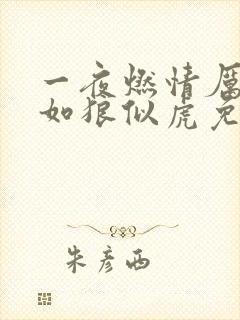 一夜燃情厲
如狼似虎免
朱彦西